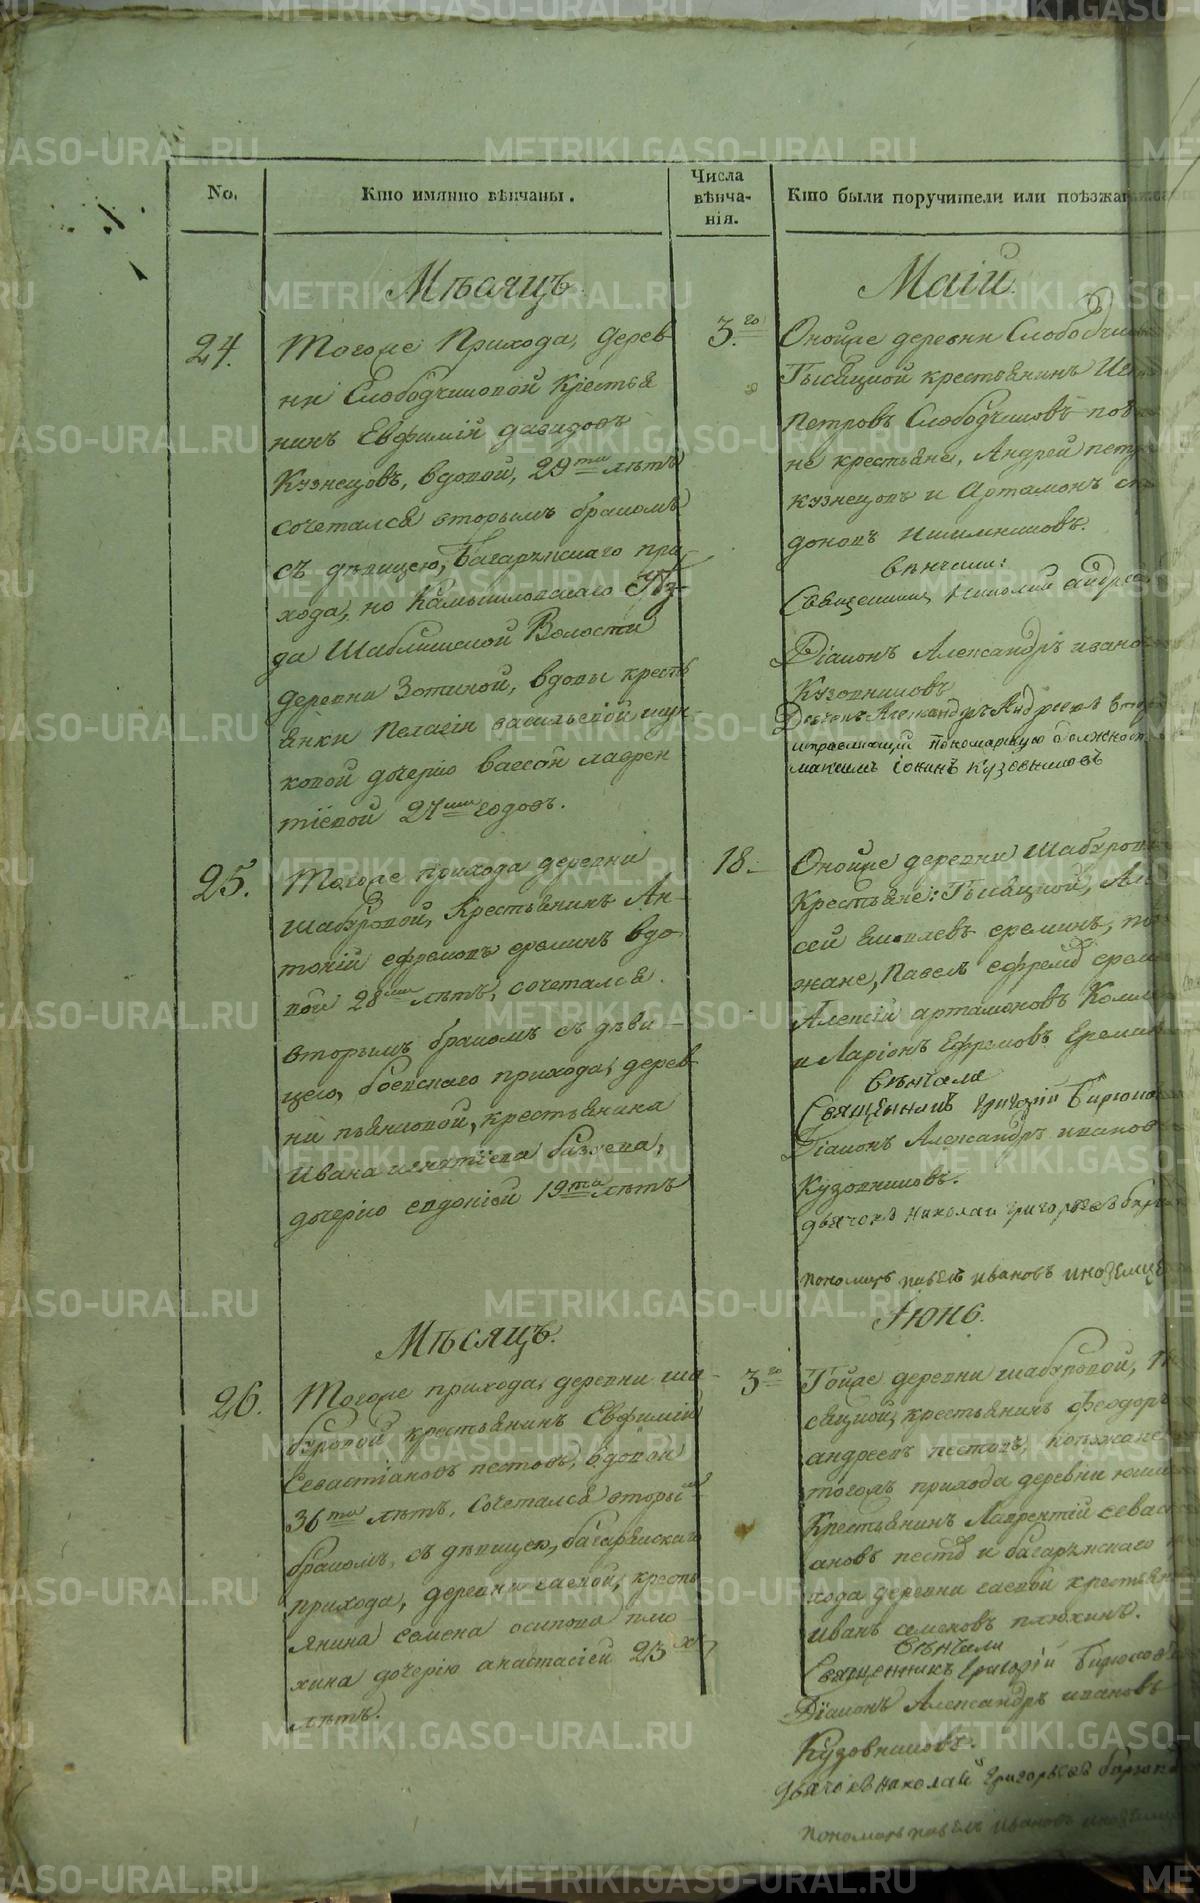 No.
Кто имянно вѣнчаны.
Числа
вѣнча-
нія.
Кто были поручители или поѣзжане
Мѣсяцъ
Маій
24.
Тогоже Прихода, дерев
ни Слободчиковой Крестья
нинъ Евфимій давидовъ
Кузнецовъ, вдовой, 29ти лѣтъ
сочетался вторымъ бракомъ
съ дѣвицею, Багарякскаго при
хода, но Камышловскаго Уѣз
да Шаблишской Волости
деревни Зотиной, вдовы кресть
янки Пелагіи васильевой
ковой дочерію вассой лаврен
тіевой 27ми годовъ.
3.го
Оной же деревни
Тысяцкой крестьянинъ
Петровъ Слободчиковъ
не крестьяне, Андрей
кузнецовъ и Артамонъ
доновъ
вѣнчали:
Священникъ Николай
Діаконъ Александръ
Кузовниковъ
Дьячекъ Александръ Андреевъ
исправляющій Пономарскую должность
максимъ Іонинъ Кузовниковъ
25.
Тогоже прихода деревни
Шабуровой, Крестьянинъ Ан-
тоній ефремовъ ереминъ вдо
вой 28ми лѣтъ, сочетался
вторымъ бракомъ съ дѣви-
цею, боевскаго прихода, дерев
ни пьянковой, крестьянина
Ивана игнатіева
дочерію евдокіей 19ти лѣтъ
18.
Оной же деревни
Крестьяне: Тысяцкой,
сей Яковлевъ ереминъ,
жане, Павелъ ефремовъ
Алексій артамоновъ
и Ларіонъ Ефремовъ
Вѣнчали
Священникъ Григорій
Діаконъ Александръ ивановъ
Кузовниковъ.
дьячокъ Николай григорьевъ
пономарь павелъ ивановъ
Мѣсяцъ.
Іюнь.
26.
Тогоже прихода, деревни ша
буровой крестьянинъ Евфимій
Севастіановъ пестовъ, вдовой
36ти лѣтъ, сочетался вторымъ
бракомъ, съ дѣвицею, багарякскаго
прихода, деревни гаевой, кресть
янина семена осипова плю
хина дочерію анастасіей 23х
лѣтъ.
3го
Тойже деревни шабуровой,
сяцкой, крестьянинъ Феодоръ
андреевъ пестовъ, поезжане
тогожъ прихода деревни
Крестьянинъ Лаврентій
ановъ пестовъ и багарякскаго
хода деревни гаевой
иванъ семеновъ плюхинъ.
Вѣнчали
Священникъ Григорій
Діаконъ Александръ ивановъ
Кузовниковъ.
Дьячокъ Николай григорьевъ
пономарь павелъ ивановъ
METRIKI.GASO-URAL.RU